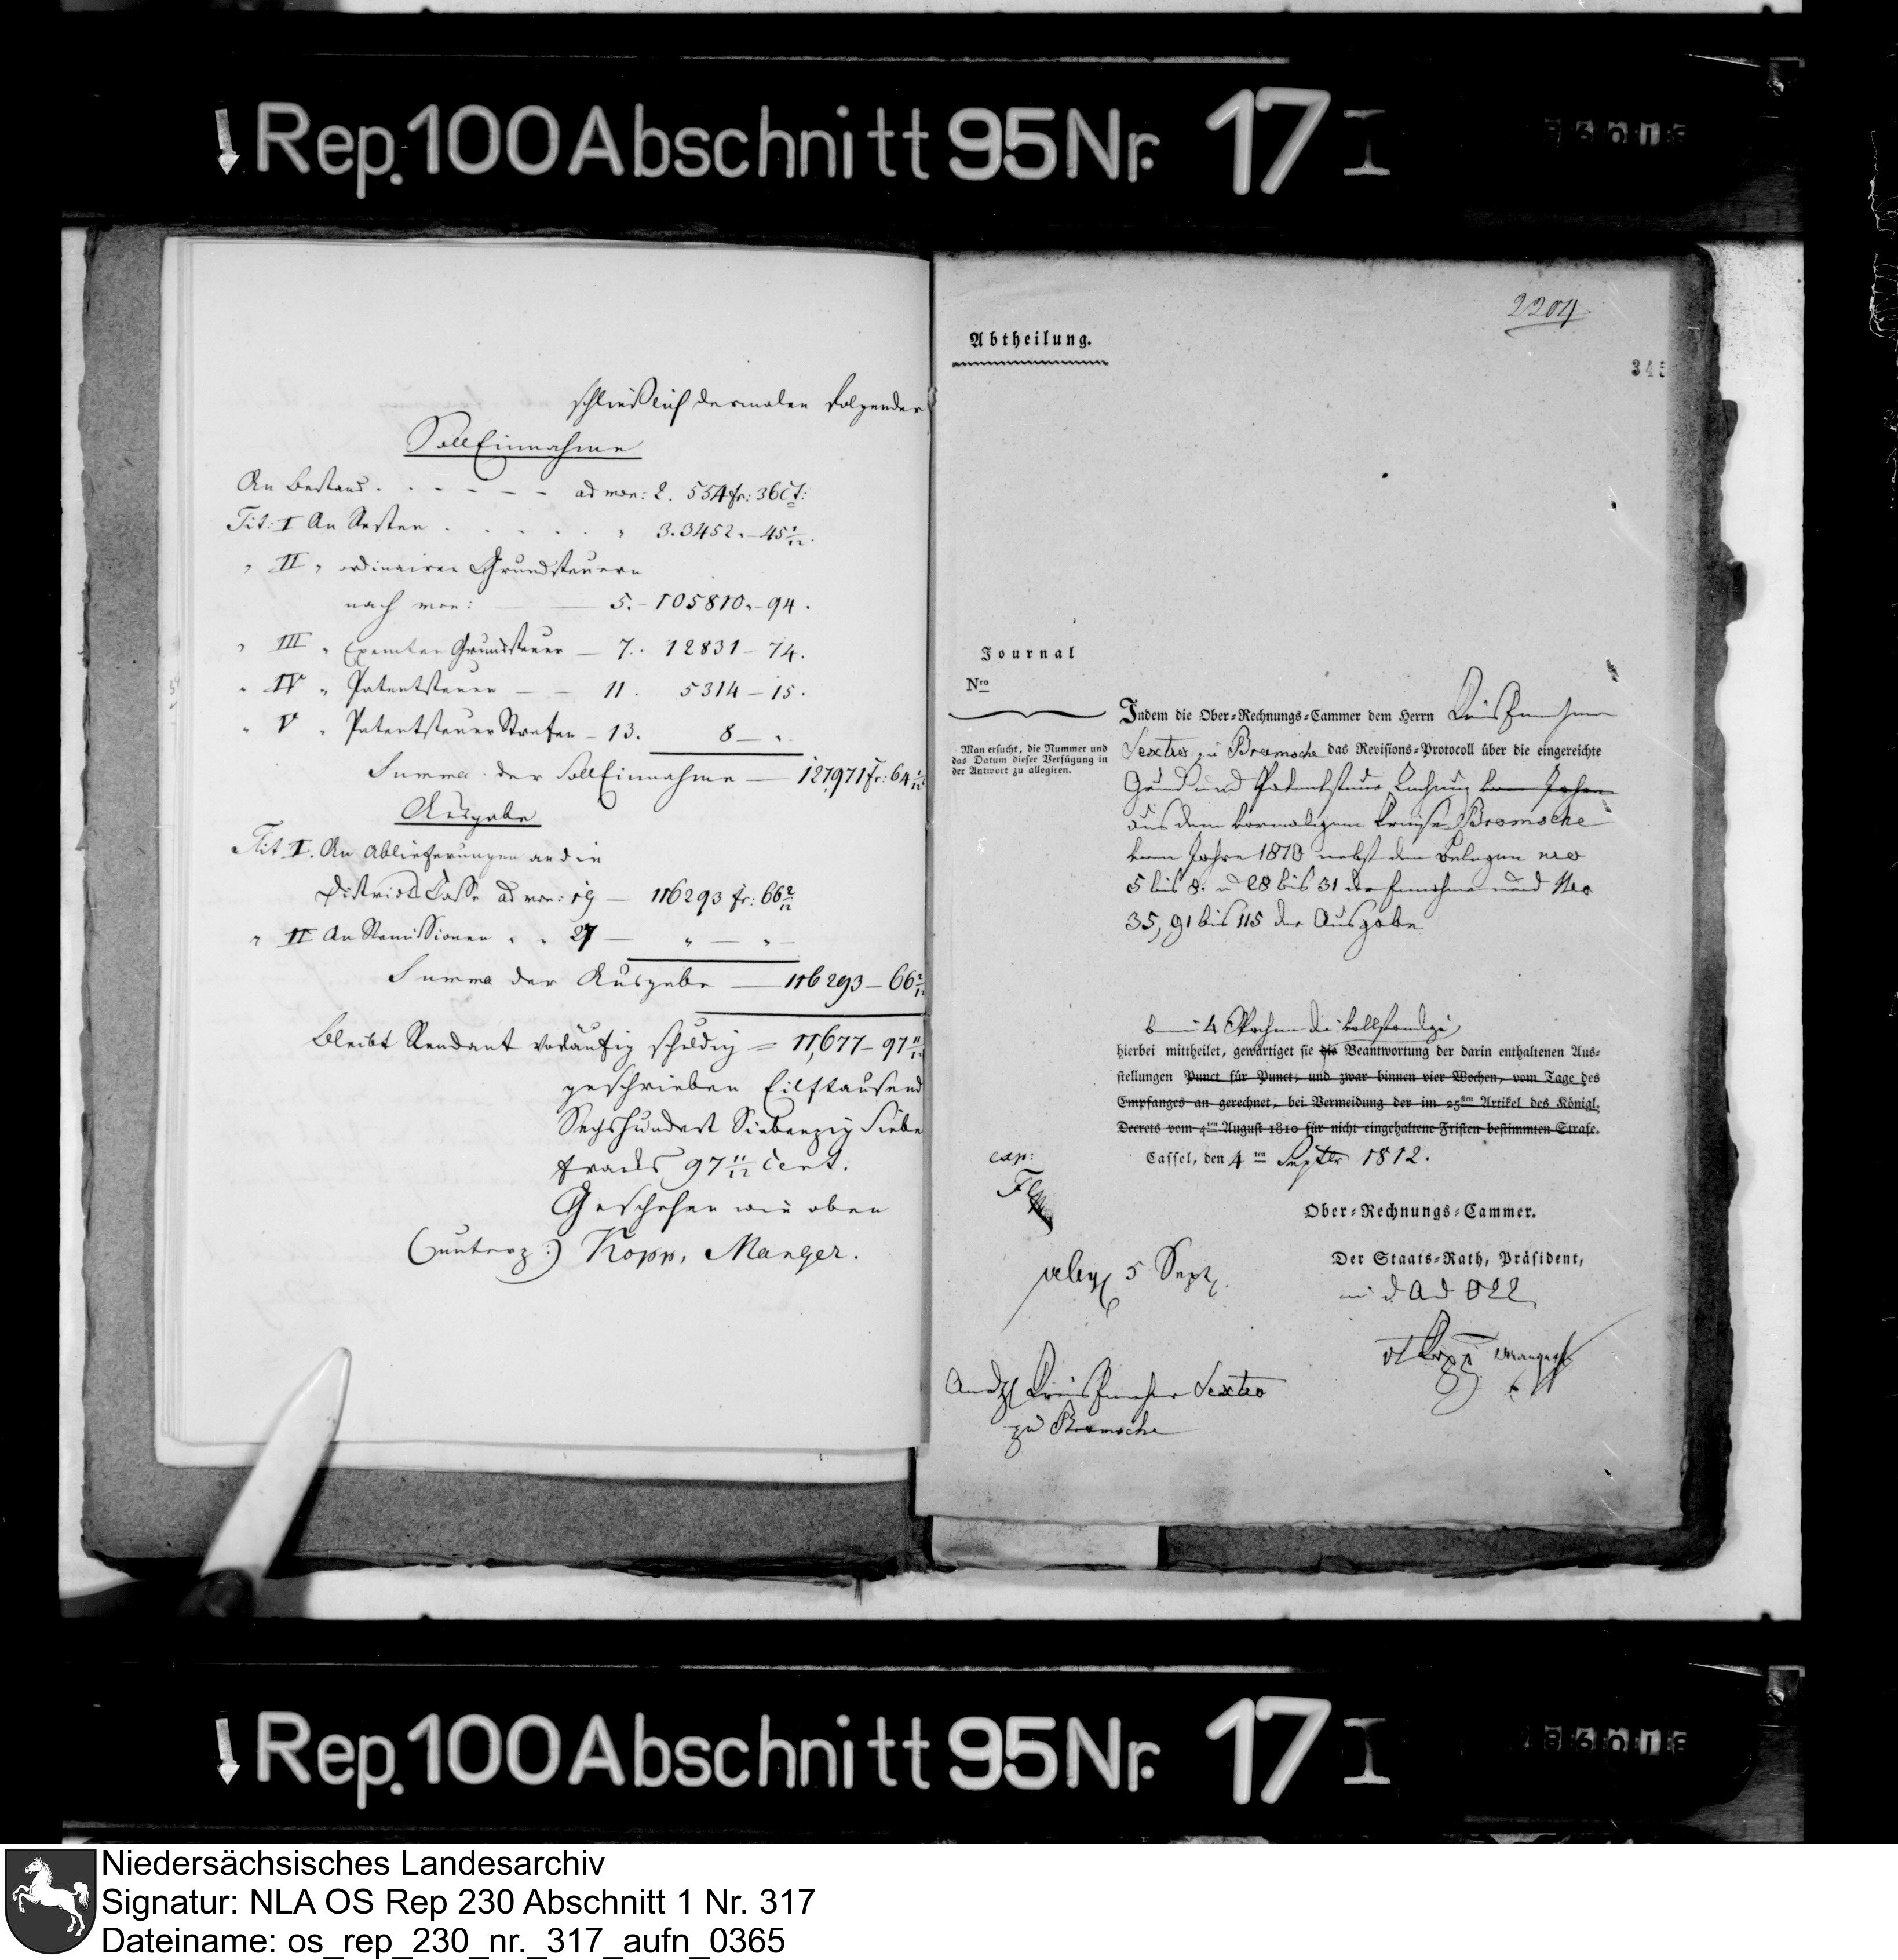 Rep. 100 Abschnitt 95 Nr. 17 I
schließlich dermalen folgender
Soll Einnahme
An Bestand . . - - - - ad mon: 2. 554 fr: 36 Ct:
Tit: I An Resten . . . . . " 3. 3452. - 45 1/12.
" II " ordinairen Grundsteuern
nach mon: — — 5. - 105810. - 94.
" III " Exemten Grundsteuer — 7. . 12831 - 74.
" IV " Patentsteuer — — 11. 5314 - 15.
" V " Patentsteuer Strafen - 13. 8 — " .
Summa der Soll Einnahme — 127,971 fr: 64 1/12
Ausgabe
Tit I. An Ablieferungen an die
Districts Casse ad mon: 19 — 116293 fr: 66 2/12
" II An Remissionen " " 27 — " — " —
Summa der Ausgabe — 116293 — 66 2/12
Bleibt Rendant vorläufig schuldig = 11,677 - 97 11/12
geschrieben Eilftausend
Sechshundert Siebenzig Siebe
francs 97 11/12 Cent.
Geschehen wie oben
(unterz:) Kopp, Manger.
2204
345
Abtheilung.
Journal
Nro
Man ersucht, die Nummer und
das Datum dieser Verfügung in
der Antwort zu allegiren.
Indem die Ober-Rechnungs-Cammer dem Herrn Kreis Einnehmer
Sextro zu Bramsche das Revisions-Protocoll über die eingereichte
Grund und Patentsteuer Rechnung vom Jahre
aus dem vormaligen Kreise Bramsche
vom Jahre 1810 nebst den Belegen nro
5 bis 8. u 28 bis 31 der Einnahme und Nro
35, 91 bis 115 der Ausgabe
4 Wochen die vollständige
hierbei mittheilet, gewärtiget sie die Beantwortung der darin enthaltenen Aus-
stellungen Punct für Punct, und zwar binnen vier Wochen, vom Tage des
Empfanges an gerechnet, bei Vermeidung der im 25sten Artikel des Königl.
Decrets vom 4ten August 1810 für nicht eingehaltene Fristen bestimmten Strafe.
Cassel, den 4 ten Septbr 1812.
exp:
Ober-Rechnungs-Cammer.
Der Staats-Rath, Präsident,
5 Sept.
vt Kopp Manger
An den Kreis Einnehmer Sextro
zu Bramsche
Rep. 100 Abschnitt 95 Nr. 17 I
Niedersächsisches Landesarchiv
Signatur: NLA OS Rep 230 Abschnitt 1 Nr. 317
Dateiname: os_rep_230_nr._317_aufn_0365